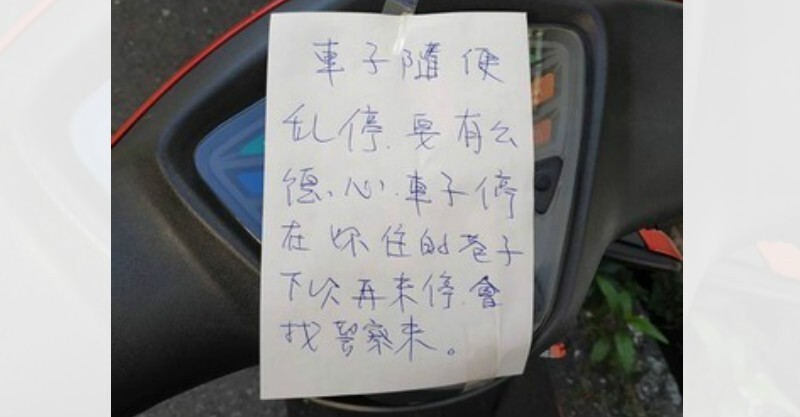 車子隨便
乱停.要有公
德心.車子停
在妳住的巷子
下次再来停.會
找警察来。